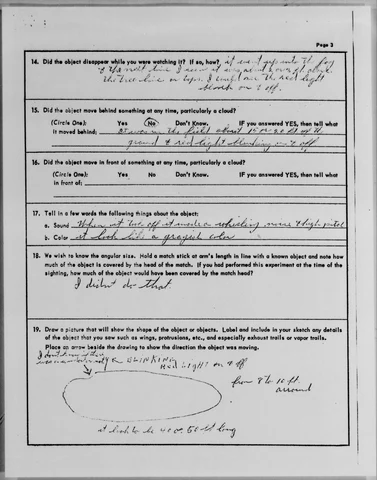 Page 3
14. Did the object disappear while you were watching it? If so, how? it went up into the fog
& the next time I seen it was about over
the tree line or tops. I could see the red light
blink on & off.
15. Did the object move behind something at any time, particularly a cloud?
(Circle One): Yes No Don't Know. IF you answered YES, then tell what
it moved behind: It was in the field about 15 or 20 ft off the
ground & red light blinking on & off
16. Did the object move in front of something at any time, particularly a cloud?
(Circle One): Yes No Don't Know. IF you answered YES, then tell what
in front of:
17. Tell in a few words the following things about the object:
a. Sound When it took off it made a whistling noise & high pitch
b. Color it look like a grayish color
18. We wish to know the angular size. Hold a match stick at arm's length in line with a known object and note how
much of the object is covered by the head of the match. If you had performed this experiment at the time of the
sighting, how much of the object would have been covered by the match head?
I didnt do that
19. Draw a picture that will show the shape of the object or objects. Label and include in your sketch any details
of the object that you saw such as wings, protrusions, etc., and especially exhaust trails or vapor trails.
Place an arrow beside the drawing to show the direction the object was moving.
I don't know
BLINKING
Red Light on & off
from 8 to 10 ft.
around
it look to be 40 or 50 ft long